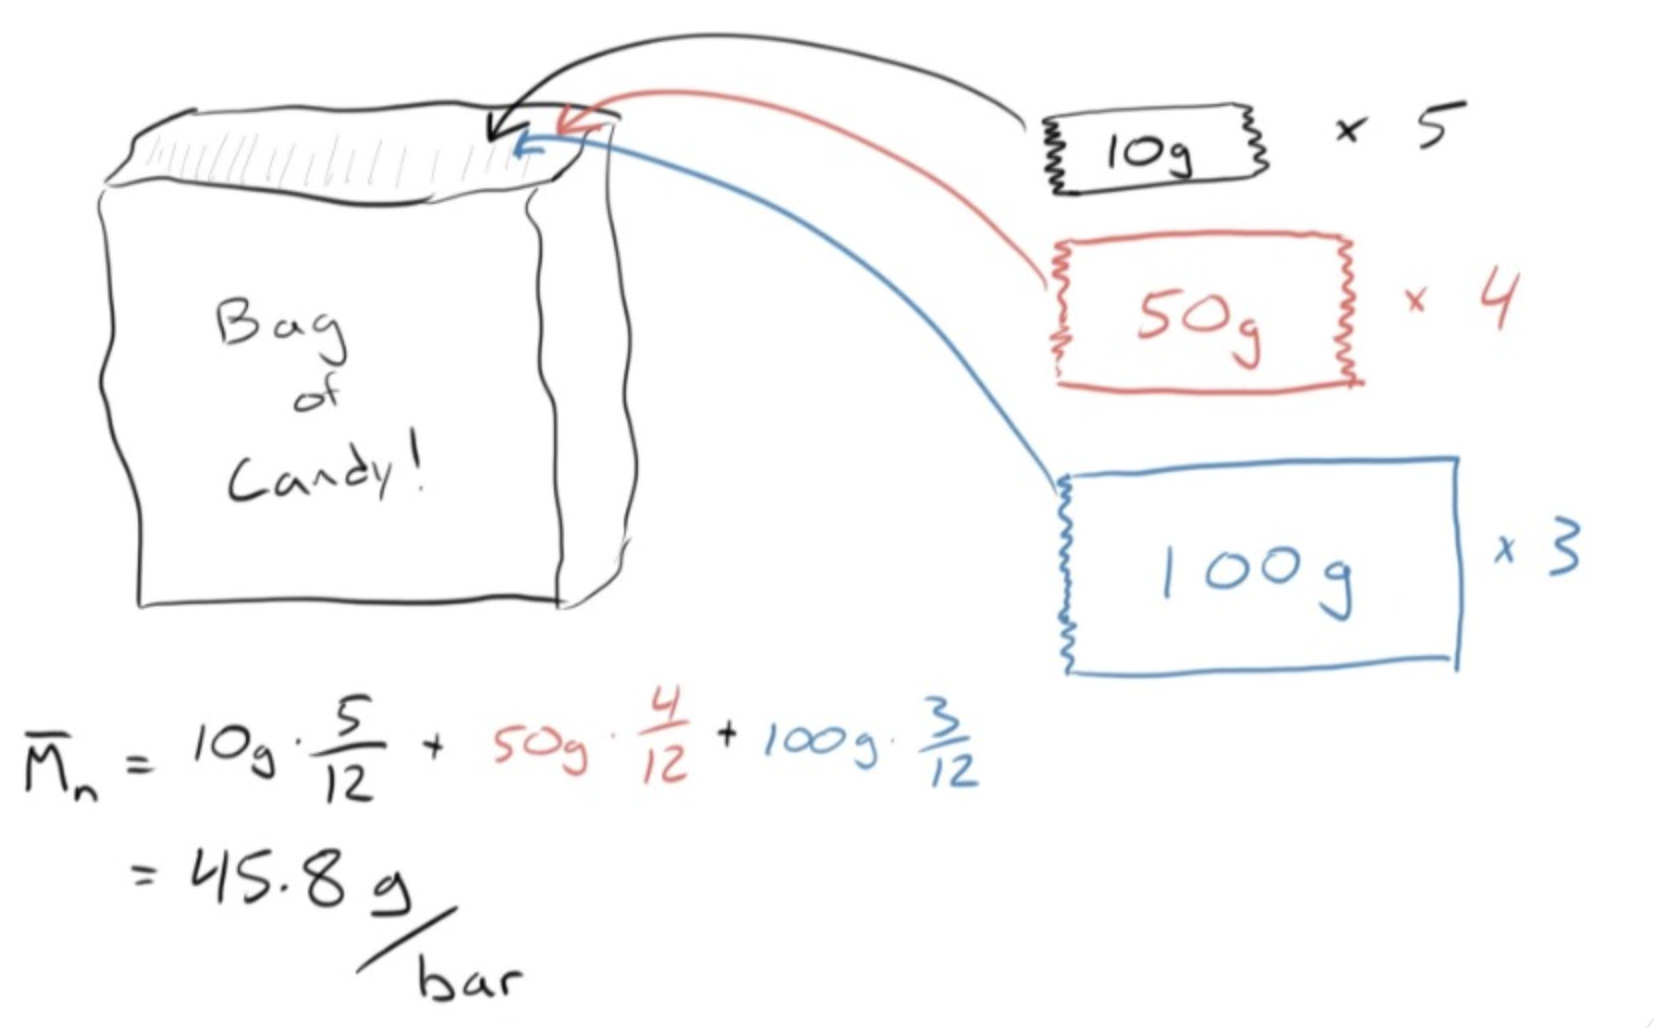 Bag
of
Candy!
10g x 5
50g x 4
100g x 3
M̅n = 10g · 5/12 + 50g · 4/12 + 100g · 3/12
= 45.8 g/bar